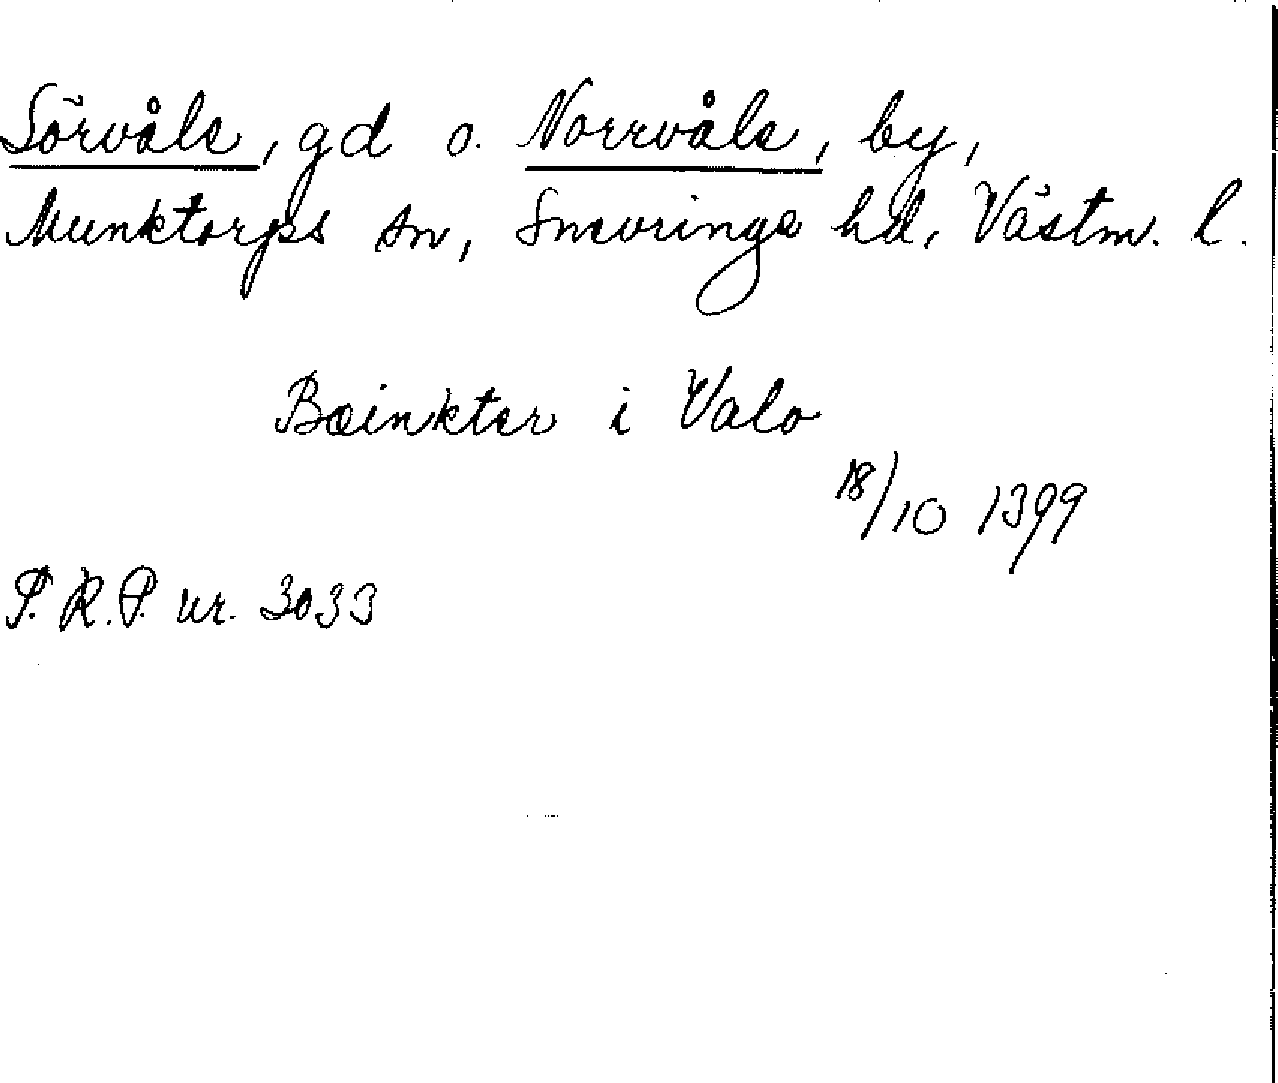 Sörvåla, gd o. Norrvåla, by,
Munktorps sn, Snevringe hd, Västm. l.
Bæinkter i Valo
18/10 1399
S.R.P. nr. 3033